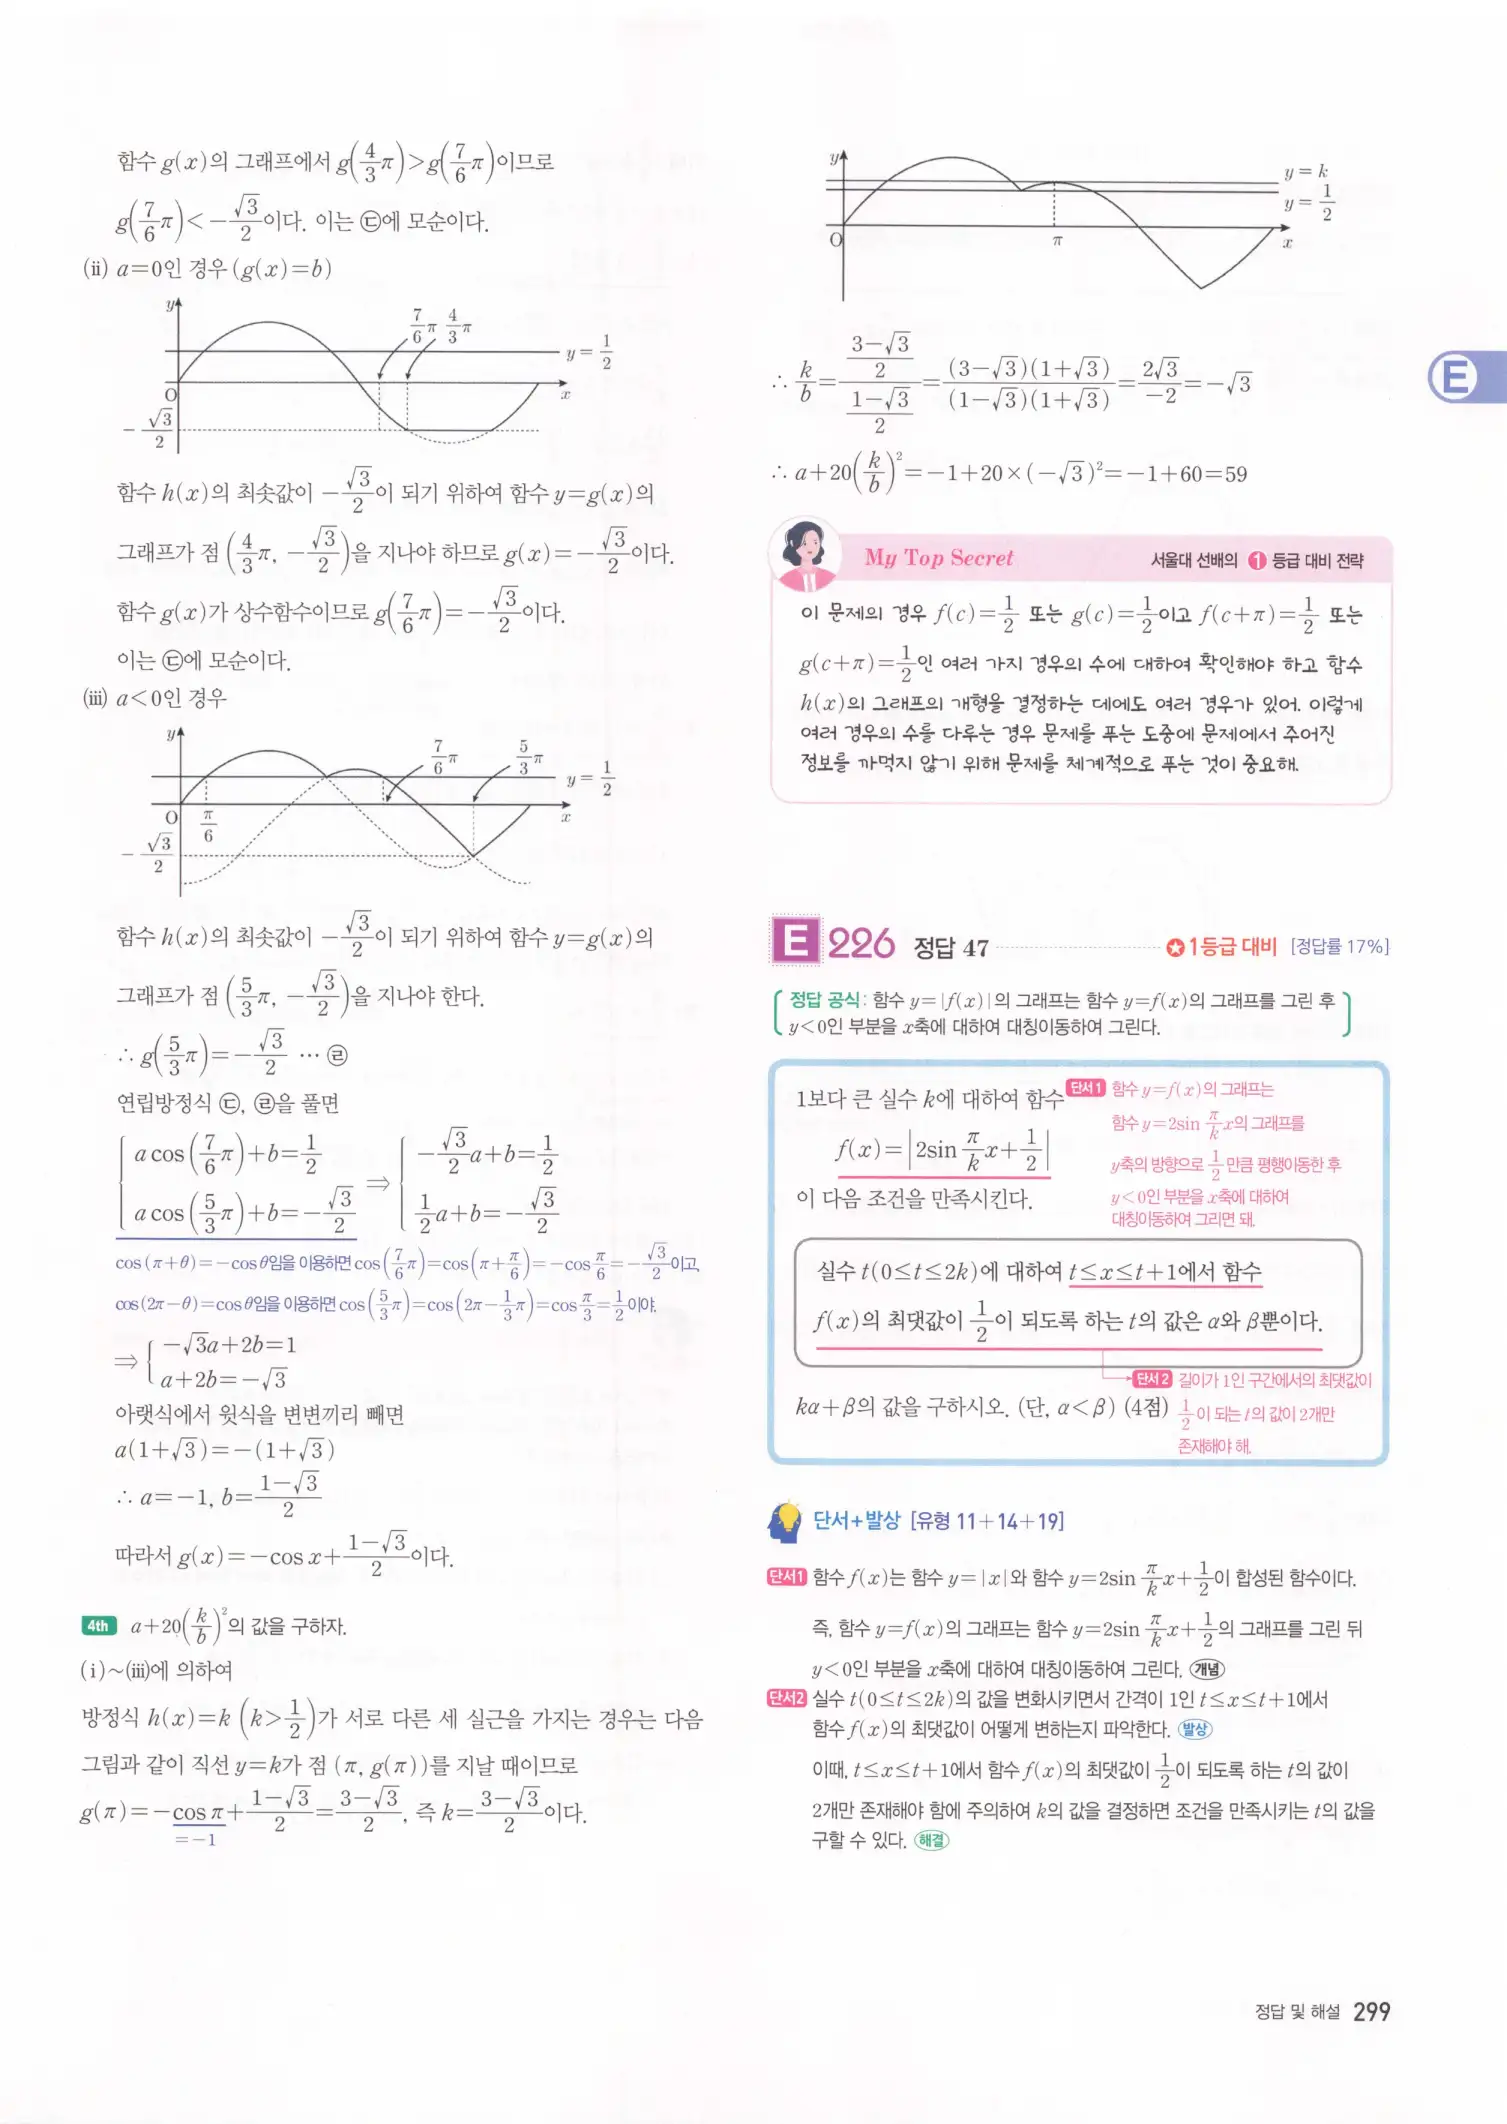 함수 g(x)의 그래프에서 g(4/3 π)>g(7/6 π)이므로
g(7/6 π)<-√3/2이다. 이는 ㉢에 모순이다.
(ii) a=0인 경우 (g(x)=b)
y
7/6 π 4/3 π
y=1/2
O
x
-√3/2
함수 h(x)의 최솟값이 -√3/2이 되기 위하여 함수 y=g(x)의
그래프가 점 (4/3 π, -√3/2)을 지나야 하므로 g(x)=-√3/2이다.
함수 g(x)가 상수함수이므로 g(7/6 π)=-√3/2이다.
이는 ㉢에 모순이다.
(iii) a<0인 경우
y
7/6 π
5/3 π
y=1/2
O
π/6
x
-√3/2
함수 h(x)의 최솟값이 -√3/2이 되기 위하여 함수 y=g(x)의
그래프가 점 (5/3 π, -√3/2)을 지나야 한다.
∴ g(5/3 π)=-√3/2 … ㉣
연립방정식 ㉢, ㉣을 풀면
{ a cos(7/6 π)+b=1/2 ⇒ { -√3/2 a+b=1/2
a cos(5/3 π)+b=-√3/2 1/2 a+b=-√3/2
cos(π+θ)=-cos θ임을 이용하면 cos(7/6 π)=cos(π+π/6)=-cos π/6=-√3/2이고,
cos(2π-θ)=cos θ임을 이용하면 cos(5/3 π)=cos(2π-1/3 π)=cos π/3=1/2이야.
⇒ { -√3a+2b=1
a+2b=-√3
아랫식에서 윗식을 변변끼리 빼면
a(1+√3)=-(1+√3)
∴ a=-1, b=(1-√3)/2
따라서 g(x)=-cos x+(1-√3)/2이다.
4th a+20(k/b)²의 값을 구하자.
(i)~(iii)에 의하여
방정식 h(x)=k (k>1/2)가 서로 다른 세 실근을 가지는 경우는 다음
그림과 같이 직선 y=k가 점 (π, g(π))를 지날 때이므로
g(π)=-cos π+(1-√3)/2=(3-√3)/2, 즉 k=(3-√3)/2이다.
=-1
y
y=k
y=1/2
O
π
x
∴ k/b=((3-√3)/2)/((1-√3)/2)=(3-√3)(1+√3)/(1-√3)(1+√3)=2√3/-2=-√3
∴ a+20(k/b)²=-1+20×(-√3)²=-1+60=59
E
My Top Secret 서울대 선배의 1 등급 대비 전략
이 문제의 경우 f(c)=1/2 또는 g(c)=1/2이고 f(c+π)=1/2 또는
g(c+π)=1/2인 여러 가지 경우의 수에 대하여 확인해야 하고 함수
h(x)의 그래프의 개형을 결정하는 데에도 여러 경우가 있어. 이렇게
여러 경우의 수를 다루는 경우 문제를 푸는 도중에 문제에서 주어진
정보를 까먹지 않기 위해 문제를 체계적으로 푸는 것이 중요해.
E 226 정답 47 ✪1등급 대비 [정답률 17%]
정답 공식: 함수 y=|f(x)|의 그래프는 함수 y=f(x)의 그래프를 그린 후
y<0인 부분을 x축에 대하여 대칭이동하여 그린다.
1보다 큰 실수 k에 대하여 함수
f(x)=|2sin π/k x+1/2|
이 다음 조건을 만족시킨다.
단서1 함수 y=f(x)의 그래프는
함수 y=2sin π/k x의 그래프를
y축의 방향으로 1/2만큼 평행이동한 후
y<0인 부분을 x축에 대하여
대칭이동하여 그리면 돼.
실수 t(0≤t≤2k)에 대하여 t≤x≤t+1에서 함수
f(x)의 최댓값이 1/2이 되도록 하는 t의 값은 α와 β뿐이다.
kα+β의 값을 구하시오. (단, α<β) (4점)
단서2 길이가 1인 구간에서의 최댓값이
1/2이 되는 t의 값이 2개만
존재해야 해.
단서+발상 [유형 11+14+19]
단서1 함수 f(x)는 함수 y=|x|와 함수 y=2sin π/k x+1/2이 합성된 함수이다.
즉, 함수 y=f(x)의 그래프는 함수 y=2sin π/k x+1/2의 그래프를 그린 뒤
y<0인 부분을 x축에 대하여 대칭이동하여 그린다. 개념
단서2 실수 t(0≤t≤2k)의 값을 변화시키면서 간격이 1인 t≤x≤t+1에서
함수 f(x)의 최댓값이 어떻게 변하는지 파악한다. 발상
이때, t≤x≤t+1에서 함수 f(x)의 최댓값이 1/2이 되도록 하는 t의 값이
2개만 존재해야 함에 주의하여 k의 값을 결정하면 조건을 만족시키는 t의 값을
구할 수 있다. 해결
정답 및 해설 299